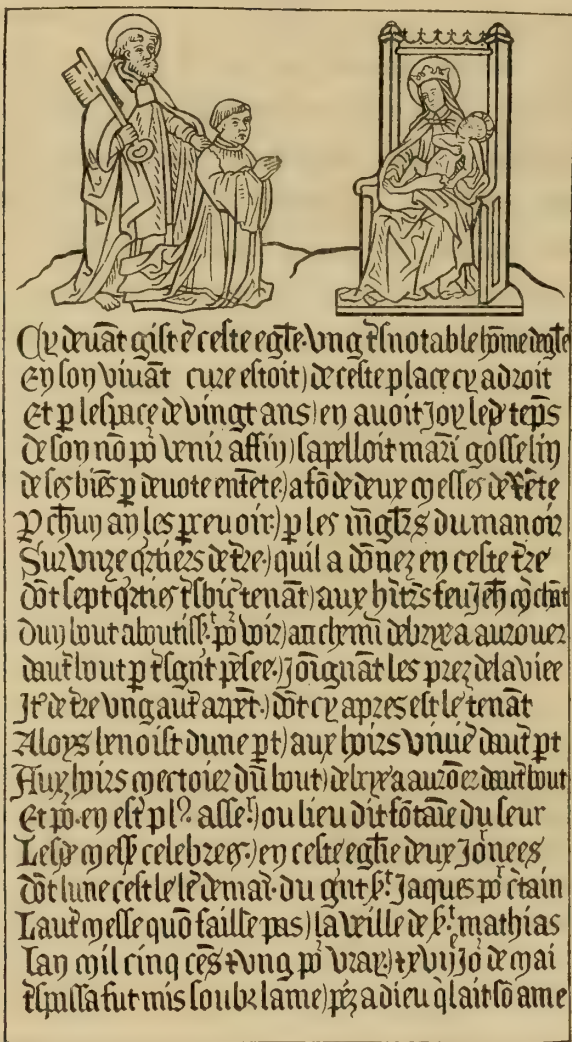 Cy deuāt gist ē ceste egłe. Vng tˢnotable hōme degłe
En son viuāt cure estoit) de ceste place cy adroit
Et p lespace de vingt ans) en auoit Joy led tēps
De son nō poʳ venir affin) sapelloit marī gosselin
de ses biēs p deuote entēte) a fōde deux messes de rēte
P chūn an les preuoir) p les mʳglrs du manoir
Sur vnze qʳtiers de tʳe) quil a dōnez en ceste tʳe
Dōt sept qʳtiers tˢbiē tenāt) aux hʳtrs feu Jeħ mʳchāt
Dun bout aboutissᵗ poʳ voir) au chemī de brye a aurouer
dautʳ bout p tˢgnt pēsee) Joīgnāt les prez de la viee
Jtᵉ de tʳe vng autʳ arpēt) dōt cy apres est le tenāt
Aloys benoist dune pt) aux hoirs viuiē dautʳ pt
Aux hoirs mectoier dū bout) de brye a aurōer dautʳ bout
Et poʳ en estʳ pl⁹ asseʳ) ou lieu dit fōtaīe du seur
Lesd messᵉ celebrees) en ceste eglīe deux Jōnees
Dōt lune cest le lēdemaī du gʳnt sᵗ Jaques poʳ ctain
Lautʳ messe quō faille pas) la veille de sᵗ mathias
Lan mil cinq cēs ⁊ vng poʳ vray) xvijᵉ Joʳ de mai
tˢpassa fut mis soubz lame) pēz a dieu qͥl ait sō ame